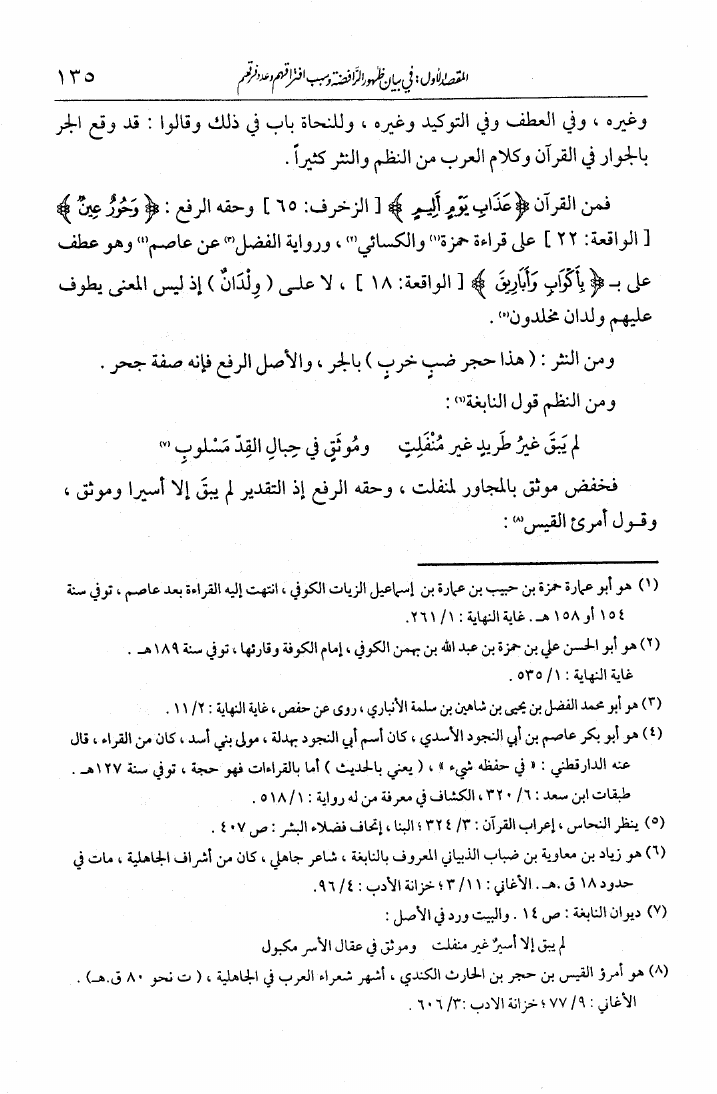 المقصد الأول: في بيان ظهور الرافضة وسبب افتراقهم وعدد فرقهم
١٣٥
وغيره ، وفي العطف وفي التوكيد وغيره ، وللنحاة باب في ذلك وقالوا : قد وقع الجر
بالجوار في القرآن وكلام العرب من النظم والنثر كثيراً .
فمن القرآن ﴿ عَذَابِ يَوْمٍ أَلِيمٍ ﴾ [ الزخرف: ٦٥ ] وحقه الرفع : ﴿ وَحُورٌ عِينٌ ﴾
[ الواقعة: ٢٢ ] على قراءة حمزة(١) والكسائي(٢) ، ورواية الفضل(٣) عن عاصم(٤) وهو عطف
على بـ ﴿ بِأَكْوَابٍ وَأَبَارِيقَ ﴾ [ الواقعة: ١٨ ] ، لا علـى ( وِلْدَانٌ ) إذ ليس المعنى يطوف
عليهم ولدان مخلدون(٥) .
ومن النثر : ( هذا حجر ضبٍ خربٍ ) بالجر ، والأصل الرفع فإنه صفة جحر .
ومن النظم قول النابغة(٦) :
لم يَبقَ غيرُ طَريدٍ غير مُنْفَلِتٍ ومُوثَقٍ في حِبالِ القِدّ مَسْلوبِ (٧)
فخفض موثق بالمجاور لمنفلت ، وحقه الرفع إذ التقدير لم يبقَ إلا أسيرا وموثق ،
وقـول أمرئ القيس(٨) :
(١) هو أبو عمارة حمزة بن حبيب بن عمارة بن إسماعيل الزيات الكوفي ، انتهت إليه القراءة بعد عاصم ، توفي سنة
١٥٤ أو ١٥٨ هـ . غاية النهاية : ١/ ٢٦١.
(٢) هو أبو الحسن علي بن حمزة بن عبد الله بن بهمن الكوفي ، إمام الكوفة وقارئها ، توفي سنة ١٨٩هـ .
غاية النهاية : ١/ ٥٣٥ .
(٣) هو أبو محمد الفضل بن يحيى بن شاهين بن سلمة الأنباري ، روى عن حفص ، غاية النهاية : ٢/ ١١ .
(٤) هو أبو بكر عاصم بن أبي النجود الأسدي ، كان أسم أبي النجود بهدلة ، مولى بني أسد ، كان من القراء ، قال
عنه الدارقطني : « في حفظه شيء » ، ( يعني بالحديث ) أما بالقراءات فهو حجة ، توفي سنة ١٢٧هـ .
طبقات ابن سعد : ٦/ ٣٢٠ ، الكشاف في معرفة من له رواية : ١/ ٥١٨ .
(٥) ينظر النحاس ، إعراب القرآن : ٣/ ٣٢٤ ؛ البنا ، إتحاف فضلاء البشر : ص ٤٠٧ .
(٦) هو زياد بن معاوية بن ضباب الذبياني المعروف بالنابغة ، شاعر جاهلي ، كان من أشراف الجاهلية ، مات في
حدود ١٨ ق .هـ . الأغاني : ١١/ ٣ ؛ خزانة الأدب : ٤/ ٩٦.
(٧) ديوان النابغة : ص ١٤ . والبيت ورد في الأصل :
لم يبق إلا أسيرٌ غير منفلت وموثق في عقال الأسر مكبول
(٨) هو أمرؤ القيس بن حجر بن الحارث الكندي ، أشهر شعراء العرب في الجاهلية ، ( ت نحو ٨٠ ق.هـ) .
الأغاني : ٩/ ٧٧ ؛ خزانة الادب :٣/ ٦٠٦ .